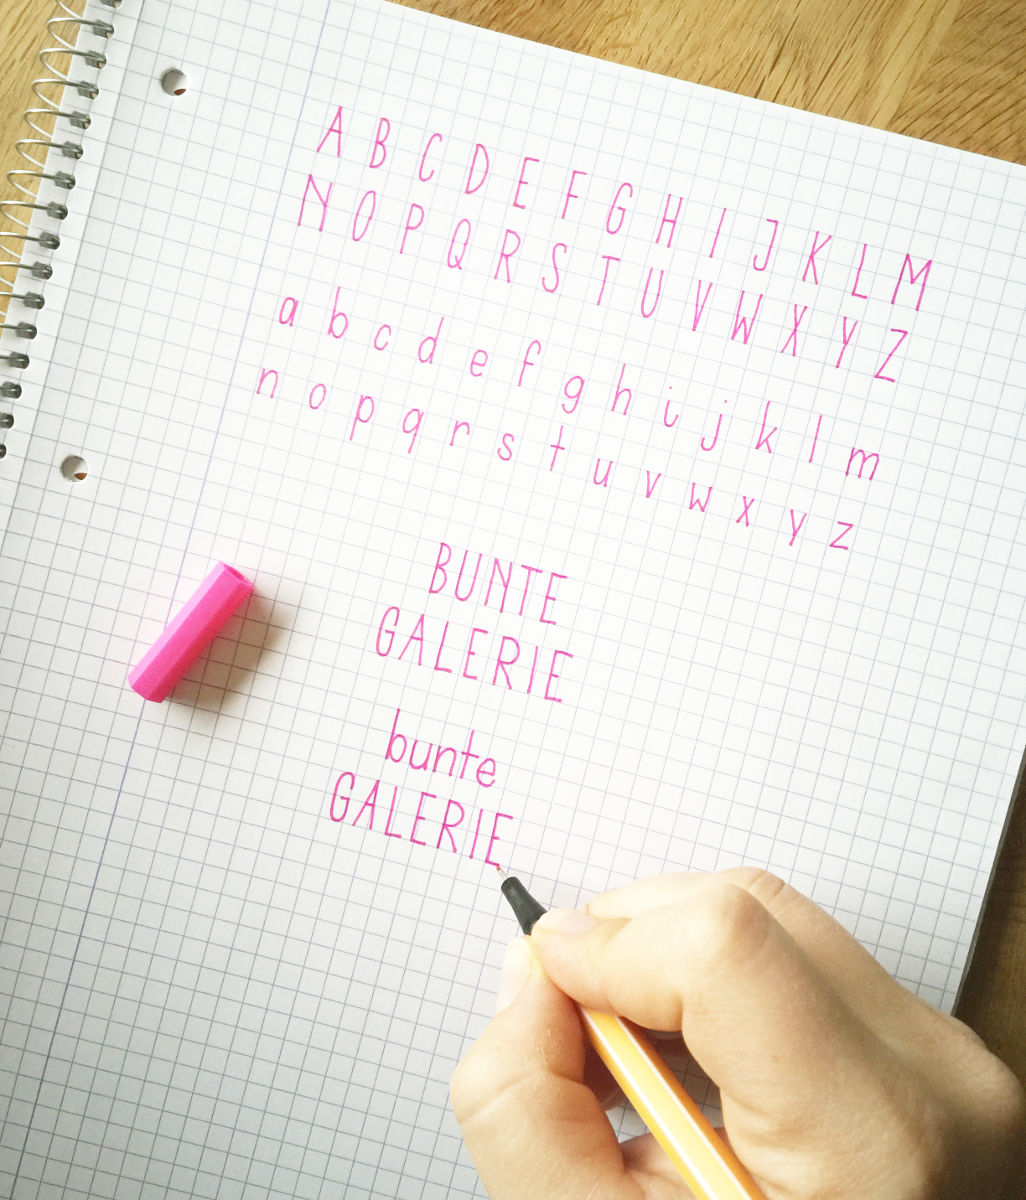 A B C D E F G H I J K L M
N O P Q R S T U V W X Y Z
a b c d e f g h i j k l m
n o p q r s t u v w x y z
BUNTE
GALERIE
bunte
GALERIE